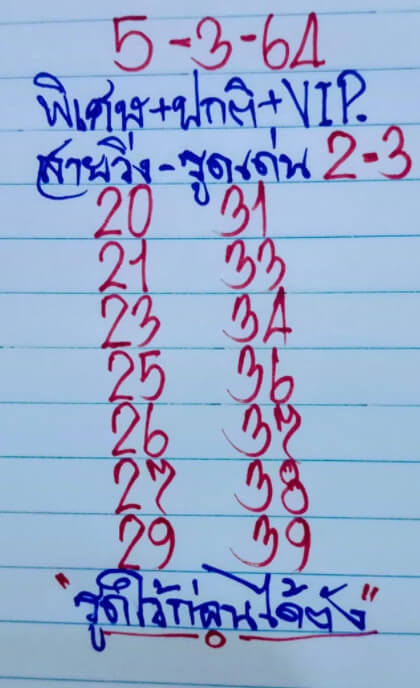 5-3-64
พิเศษ+ปกติ+VIP.
สายวิ่ง-รูดเด่น 2-3
20 31
21 33
23 34
25 36
26 37
27 38
29 39
"รูดไว้ก่อนได้ตัง"